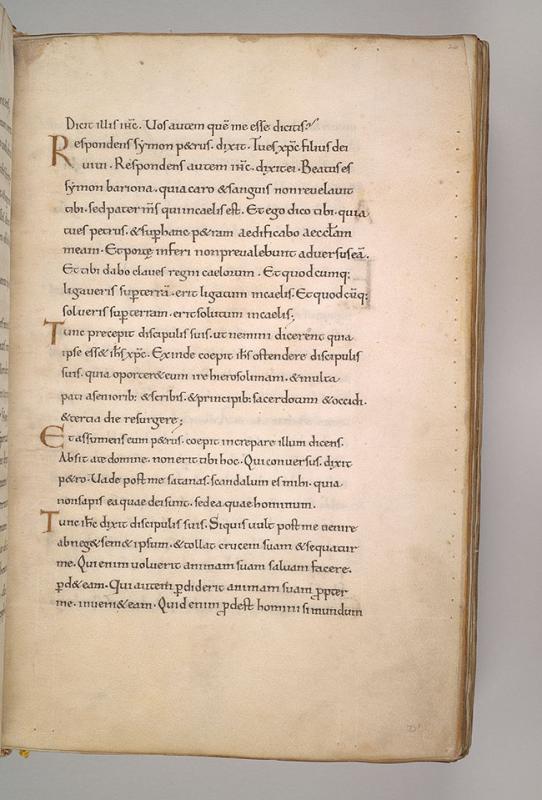 Dicit illis ihc. Uos autem quē me esse dicitis?
Respondens symon p&rus. dixit. Tu es xpc filius dei
uiui. Respondens autem ihc. dixit ei. Beatus es
symon bariona. quia caro & sanguis non reuelauit
tibi. sed pater ms qui in caelis est. Et ego dico tibi. quia
tu es petrus. & sup hanc p&ram aedificabo aecclam
meam. Et portę inferi non preualebunt aduersus eā.
Et tibi dabo claues regni caelorum. Et quodcumq;
ligaueris sup terrā. erit ligatum in caelis. Et quodcūq;
solueris sup terram. erit solutum in caelis;
Tunc precepit discipulis suis. ut nemini dicerent quia
ipse ess& ihs xpc. Exinde coepit ihs ostendere discipulis
suis. quia oporter& eum ire hierosolimam. & multa
pati a seniorib: & scribis. & principib: sacerdotum & occidi.
& tertia die resurgere;
Et assumens eum p&rus. coepit increpare illum dicens.
Absit a te domine. non erit tibi hoc. Qui conuersus. dixit
p&ro. Uade post me satanas. scandalum es mihi. quia
non sapis ea quae dei sunt. sed ea quae hominum.
Tunc ihc dixit discipulis suis. Si quis uult post me uenire
abneg& sem& ipsum. & tollat crucem suam & sequatur
me. Qui enim uoluerit animam suam saluam facere.
pd& eam. Qui autem pdiderit animam suam ppter
me. inueni& eam. Quid enim pdest homini si mundum